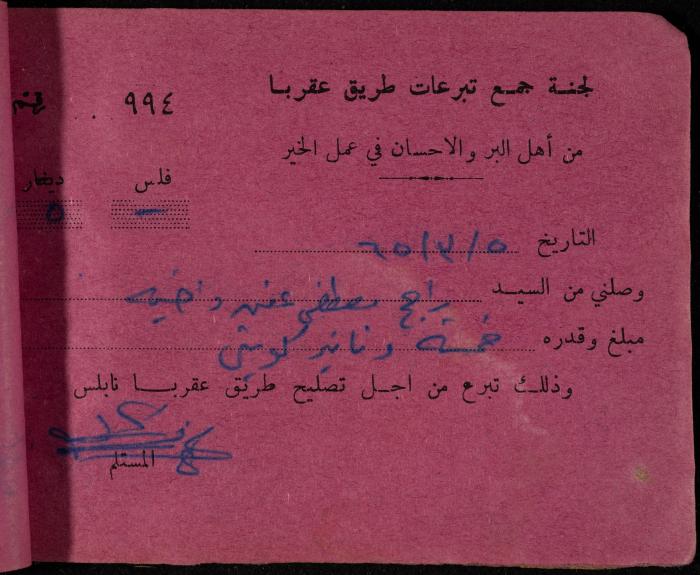 لجنة جمع تبرعات طريق عقربا
من أهل البر والاحسان في عمل الخير
٩٩٤
فلس دينار
— ٥
التاريخ ٦٥/٣/٥
وصلني من السيد راجح مصطفى
مبلغ وقدره خمسة دنانير كويتي
وذلك تبرع من اجل تصليح طريق عقربا نابلس
المستلم